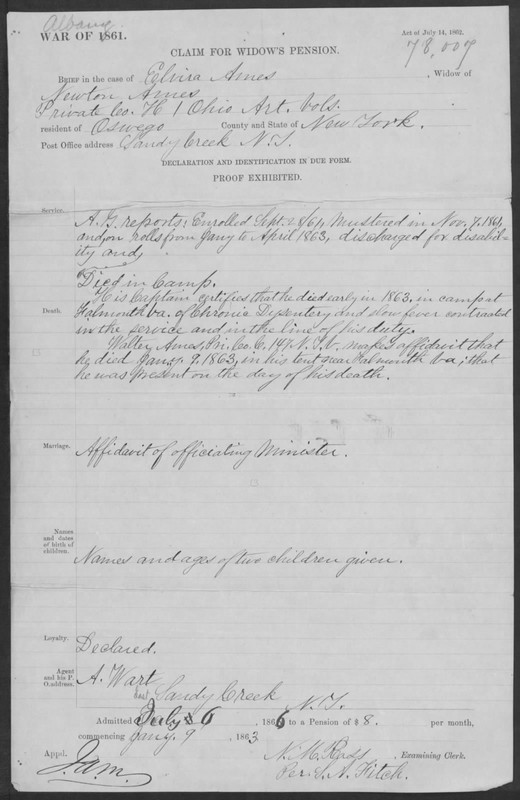 Albany
WAR OF 1861.
Act of July 14, 1862.
78,007
CLAIM FOR WIDOW'S PENSION.
BRIEF in the case of Elvira Ames, Widow of
Newton Ames
Private Co. H 1 Ohio Art. Vols.
resident of Oswego County and State of New York.
Post Office address Sandy Creek N.Y.
DECLARATION AND IDENTIFICATION IN DUE FORM.
PROOF EXHIBITED.
Service. A.G. reports: Enrolled Sept. 28/61, Mustered in Nov. 7, 1861,
and on rolls from Jany to April 1863, discharged for disabil-
ity and,
Died in Camp.
His Captain certifies that he died early in 1863, in camp at
Death. Falmouth Va. of Chronic Dysentery and slow fever contracted
in the service and in the line of his duty.
Walter Ames, Pri. Co. C. 147. N.Y.V. makes affidavit that
he died Jany. 9, 1863, in his tent near Falmouth Va; that
he was present on the day of his death.
Marriage. Affidavit of officiating Minister.
Names
and dates
of birth of
children.
Names and ages of two children given.
Loyalty. Declared.
Agent
and his P.
O. address.
A. Wart
Sandy Creek
N.Y.
Admitted July 6, 1866 to a Pension of $ 8. per month,
commencing Jany. 9, 1863
N. M. Ross, Examining Clerk.
Appl. J.A.M.
Per. S. A. Fitch.